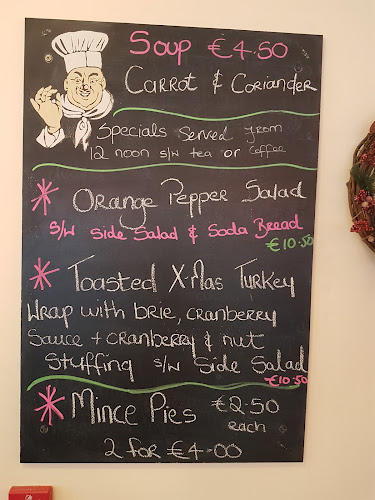 Soup €4.50
Carrot & Coriander
Specials Served from
12 noon s/w tea or coffee
* Orange Pepper Salad
s/w Side Salad & Soda Bread
€10.50
* Toasted X-Mas Turkey
Wrap with brie, cranberry
Sauce + cranberry & nut
Stuffing s/w Side Salad
€10.50
* Mince Pies €2.50
each
2 for €4.00